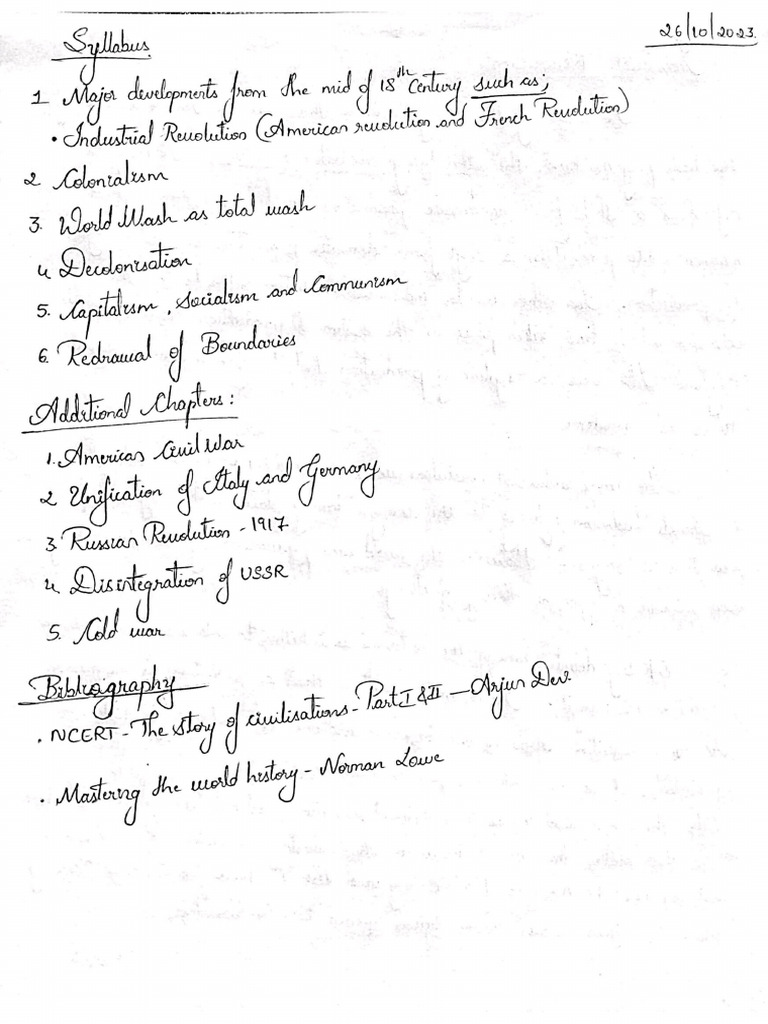 26/10/2023.
Syllabus.
1 Major developments from the mid of 18th Century such as;
• Industrial Revolution (American revolution and French Revolution)
2 Colonialism
3. World Wash as total wash
4 Decolonisation
5. Capitalism, Socialism and Communism
6. Redrawal of Boundaries
Additional Chapters:
1. American Civil War
2 Unification of Italy and Germany
3. Russian Revolution - 1917
4 Disintegration of USSR
5. Cold war
Bibliography
• NCERT - The story of civilisations - Part I & II — Arjun Dev.
• Mastering the world history - Norman Lowe